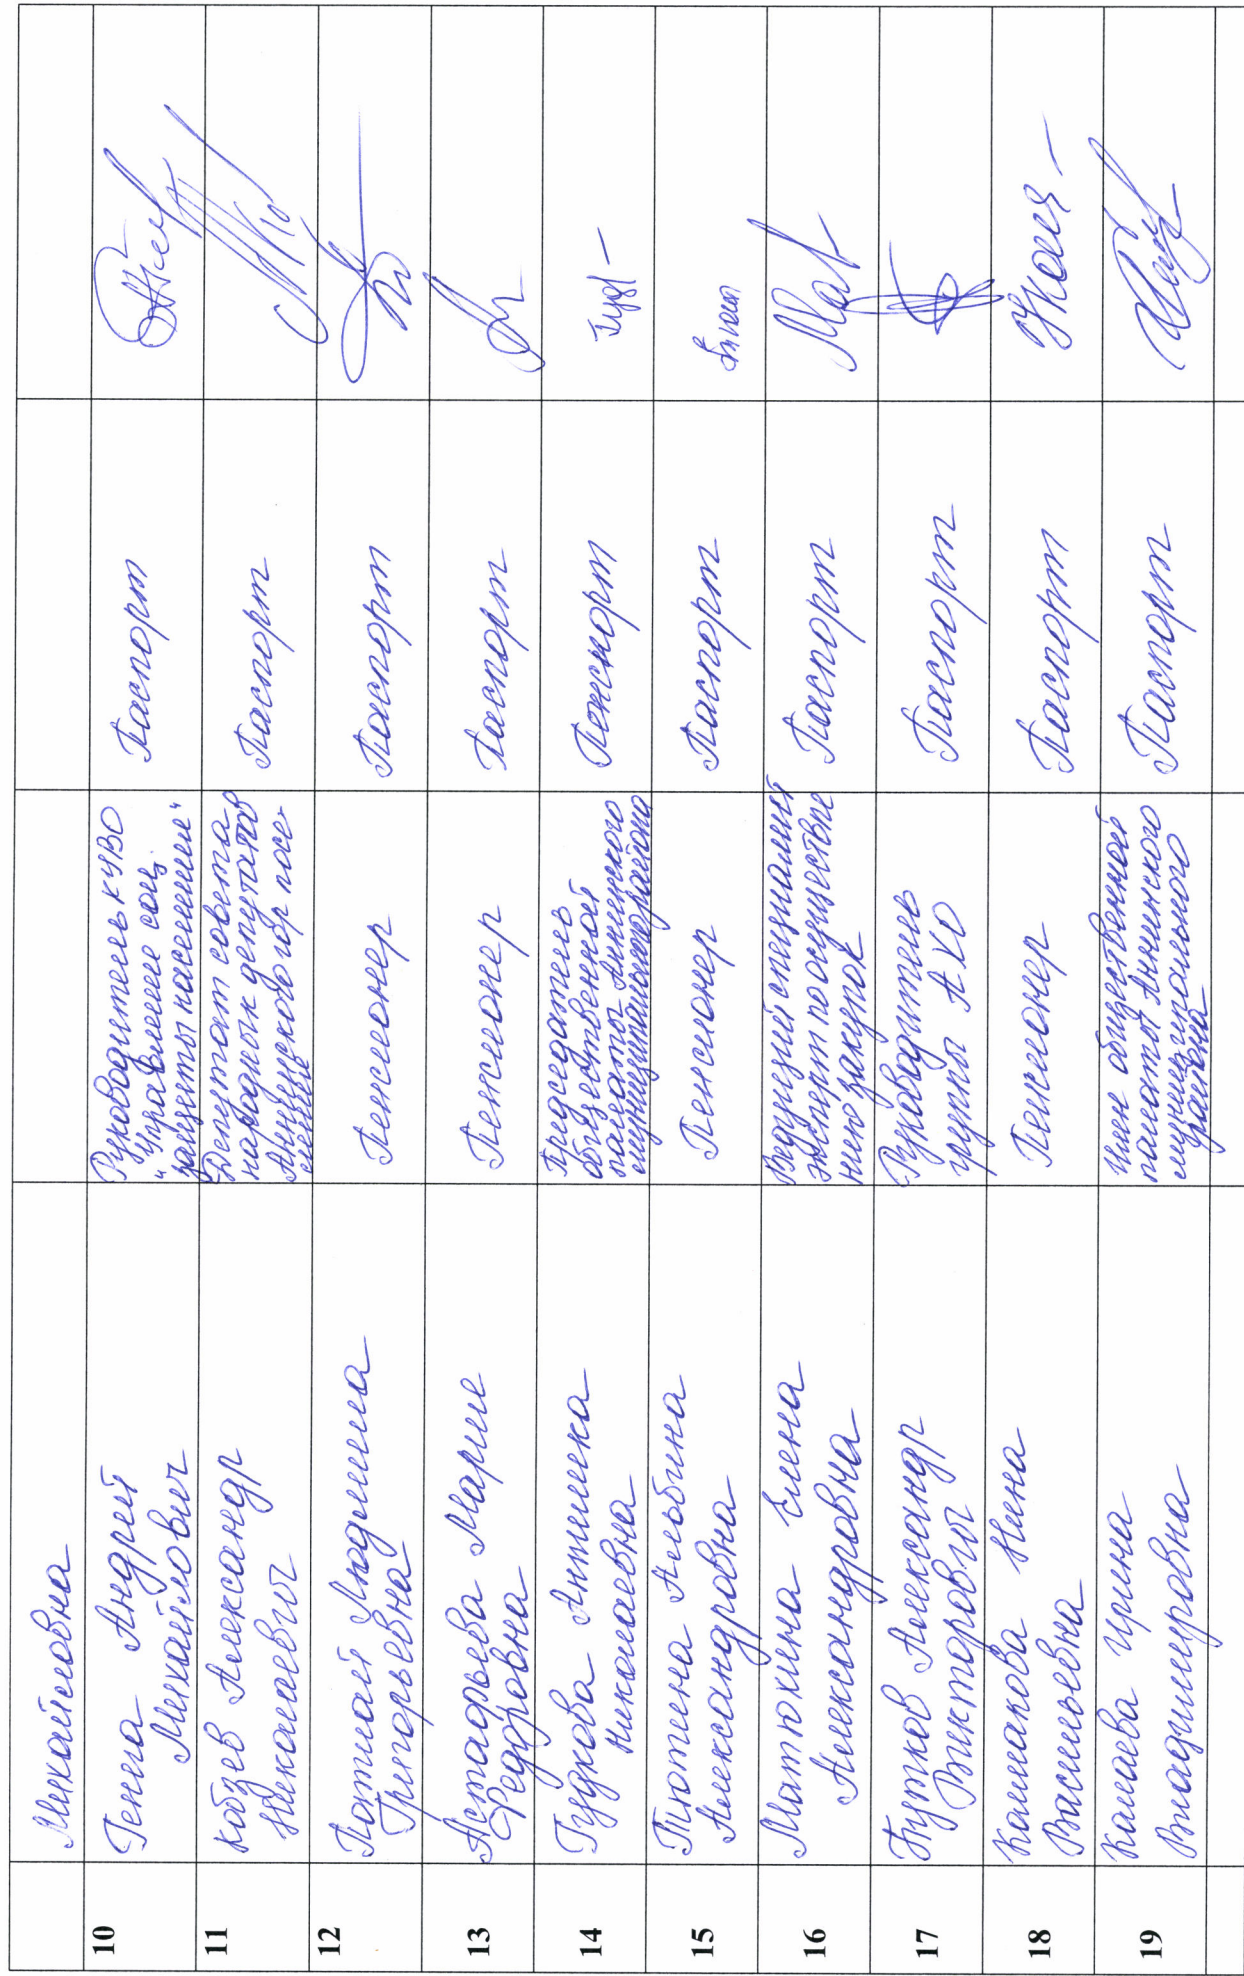 Михайловна
10
Генна Андрей
Михайлович
Руководитель КУВО
"Управление соц.
защиты населения"
Паспорт
11
Кобзев Александр
Николаевич
Депутат совета
народных депутатов
Аннинского гор посе-
ления
Паспорт
12
Людмила
Григорьевна
Пенсионер
Паспорт
13
Астафьева Мария
Федоровна
Пенсионер
Паспорт
14
Гудкова Аннишка
Николаевна
Председатель
общественной
палаты Аннинского
муниципального района
Паспорт
15
Тютина Альбина
Александровна
Пенсионер
Паспорт
16
Матюхина Елена
Александровна
Ведущий специалист
эксперт по осуществле
нию закупок
Паспорт
17
Путков Александр
Викторович
Руководитель
группы АХО
Паспорт
18
Калмакова Нина
Васильевна
Пенсионер
Паспорт
19
Камаева Ирина
Владимировна
Член общественной
палаты Аннинского
муниципального
района
Паспорт